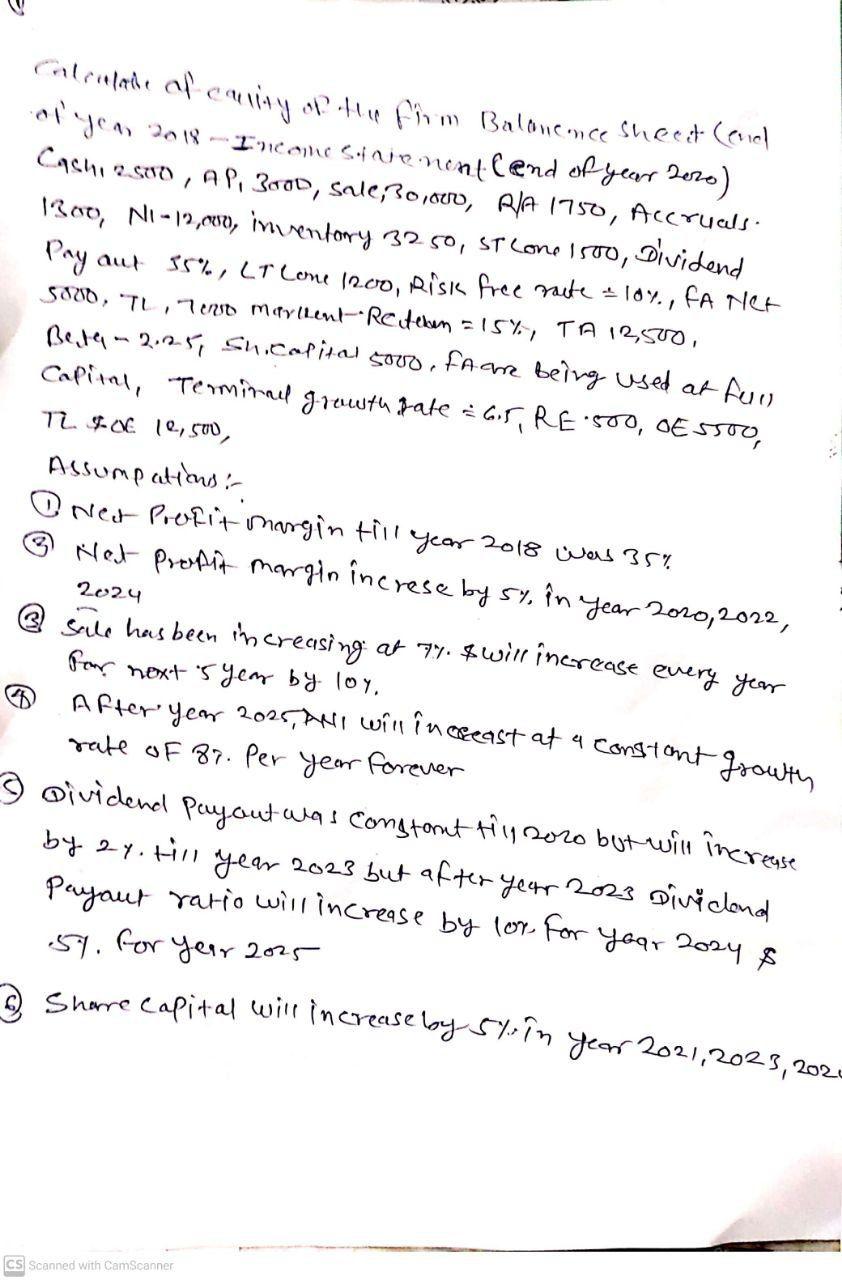 Calculate of equity of the firm Balanence sheet (end
of year 2018 - Income Statement (end of year 2020)
Cash, 2500, AP, 3000, Sale, 30,000, R/A 1750, Accruals.
1300, NI-12,000, inventory 3250, ST Lone 1500, Dividend
Pay out 55%, LT Lone 1200, Risk free rate = 10%, FA Net
5000, TL, 7000 = 15%, TA 12,500,
Beta - 2.25, Sh. Capital 5000, FA are being used at full
Capital, Terminal growth rate = 6.5, RE 500, OE 5500,
TL & OE 12,500,
Assumpations:-
① Net Profit margin till year 2018 was 35%
Net Profit margin increse by 5% in year 2020, 2022,
2024
③ Sale has been increasing at 7% & will increase every year
for next 5 year by 10%.
④ After year 2025, NI will at a constant growth
rate of 8%. Per year forever
⑤ Dividend Payout was Constant till 2020 but will increase
by 2%. till year 2023 but after year 2023 Dividend
Payout ratio will increase by 10% for year 2024 &
5%. for year 2025
⑥ Share Capital will increase by 5%. in year 2021, 2023, 202
CS Scanned with CamScanner